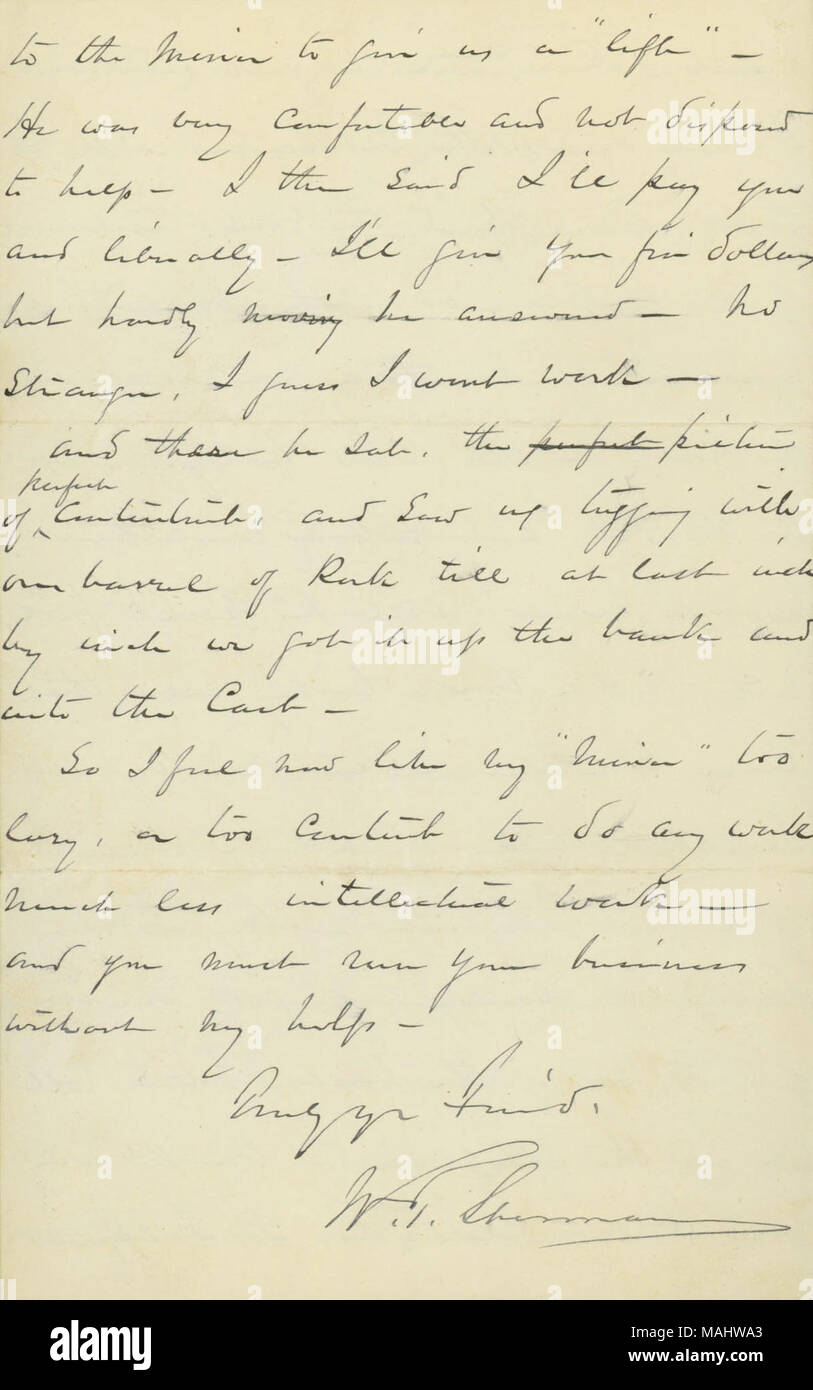 to the Miner to give us a "lift" –
He was very comfortable and not disposed
to help – I then said I'll pay you
and liberally – I'll give you five dollars
but hardly moving he answered – No
Stranger, I guess I wont work –
and there he sat, the perfect picture
perfect
of contentment, and saw us tugging with
our barrel of Pork till at last inch
by inch we got it up the bank and
into the Cart –
So I feel now like my "Miner" too
lazy, or too content to do any work
much less intellectual work –
and you must run your business
without my help –
Truly yr Friend.
W. T. Sherman
alamy
Image ID: MAHWA3
www.alamy.com